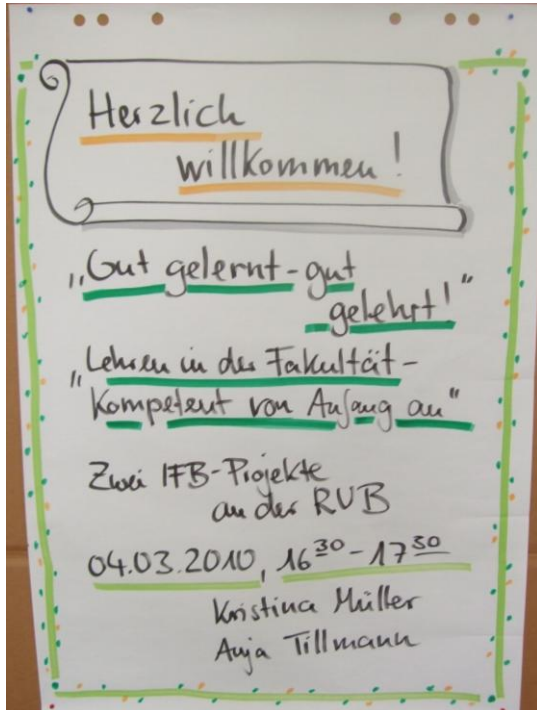 Herzlich
willkommen!
„Gut gelernt - gut
gelehrt!"
„Lehren in der Fakultät -
Kompetent von Anfang an"
Zwei IFB-Projekte
an der RUB
04.03.2010, 16³⁰ - 17³⁰
Kristina Müller
Anja Tillmann